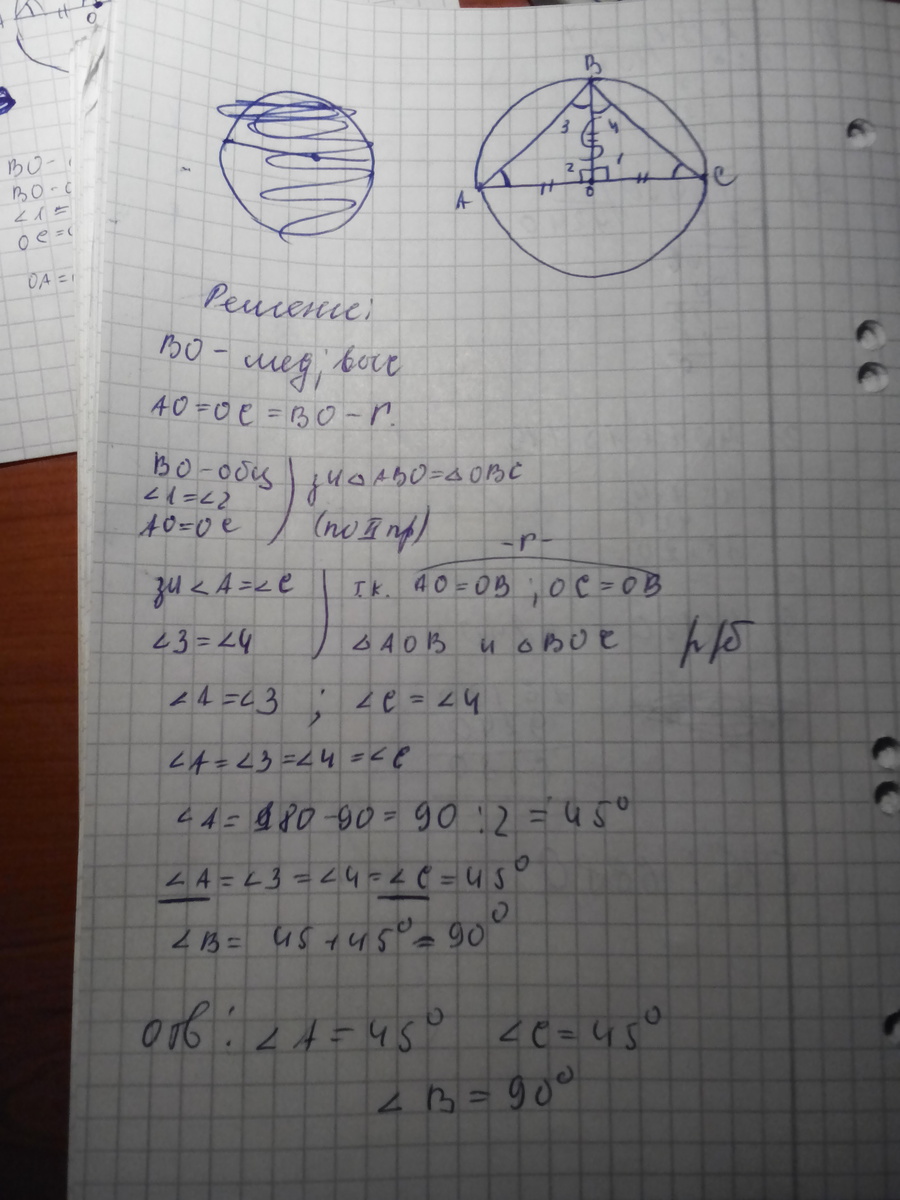 O
BO-
BO-
<1=
OC=
OA=
B
3 4
2 1
A O C
Решение:
BO - мед; выс
AO=OC=BO-r.
BO-общ
<1=<2
AO=OC
зн △ABO=△OBC
(по II пр)
зн <A=<C
<3=<4
-r-
т.к. AO=OB ; OC=OB
△AOB и △BOC р/б
<A=<3 ; <C=<4
<A=<3=<4=<C
<A=180-90=90:2=45°
<A=<3=<4=<C=45°
<B= 45+45°=90°
Отв: <A=45° <C=45°
<B=90°